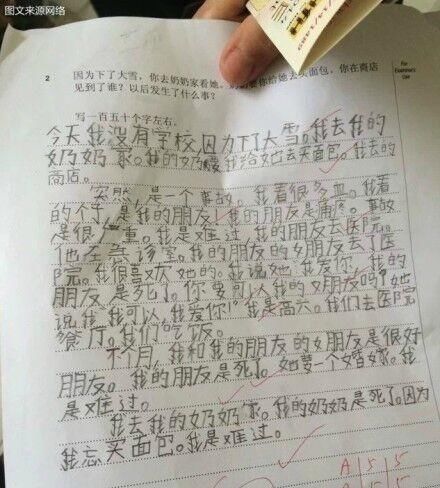 图文来源网络
For
Examiner's
Use
2 因为下了大雪，你去奶奶家看她。奶奶要你给她去买面包，你在商店
见到了谁？以后发生了什么事？
写一百五十个字左右。
今天我没有学校，因为下了大雪。我去我的
奶奶家。我的奶奶要我给她去买面包。我去的
商店。
突然，是一个事故。我看很多血。我看
的个子，是我的朋友，我的朋友是痛疼。事故
是很严重。我是难过。我的朋友去医院。
他在急诊室。我的朋友的女朋友去了医
院。我很喜欢她的。我说她“我爱你，我的
朋友，是死了。你要可以我的女朋友吗？”她
说“我可以，我爱你！”我是高兴。我们去医院
餐厅。我们吃饭。
个月，我和我的朋友的女朋友是很好
朋友。我的朋友是死了。她要一个婚嫁。我
是难过。
我去我的奶奶家。我的奶奶是死了。因为
我忘买面包。我是难过。
A 5 5